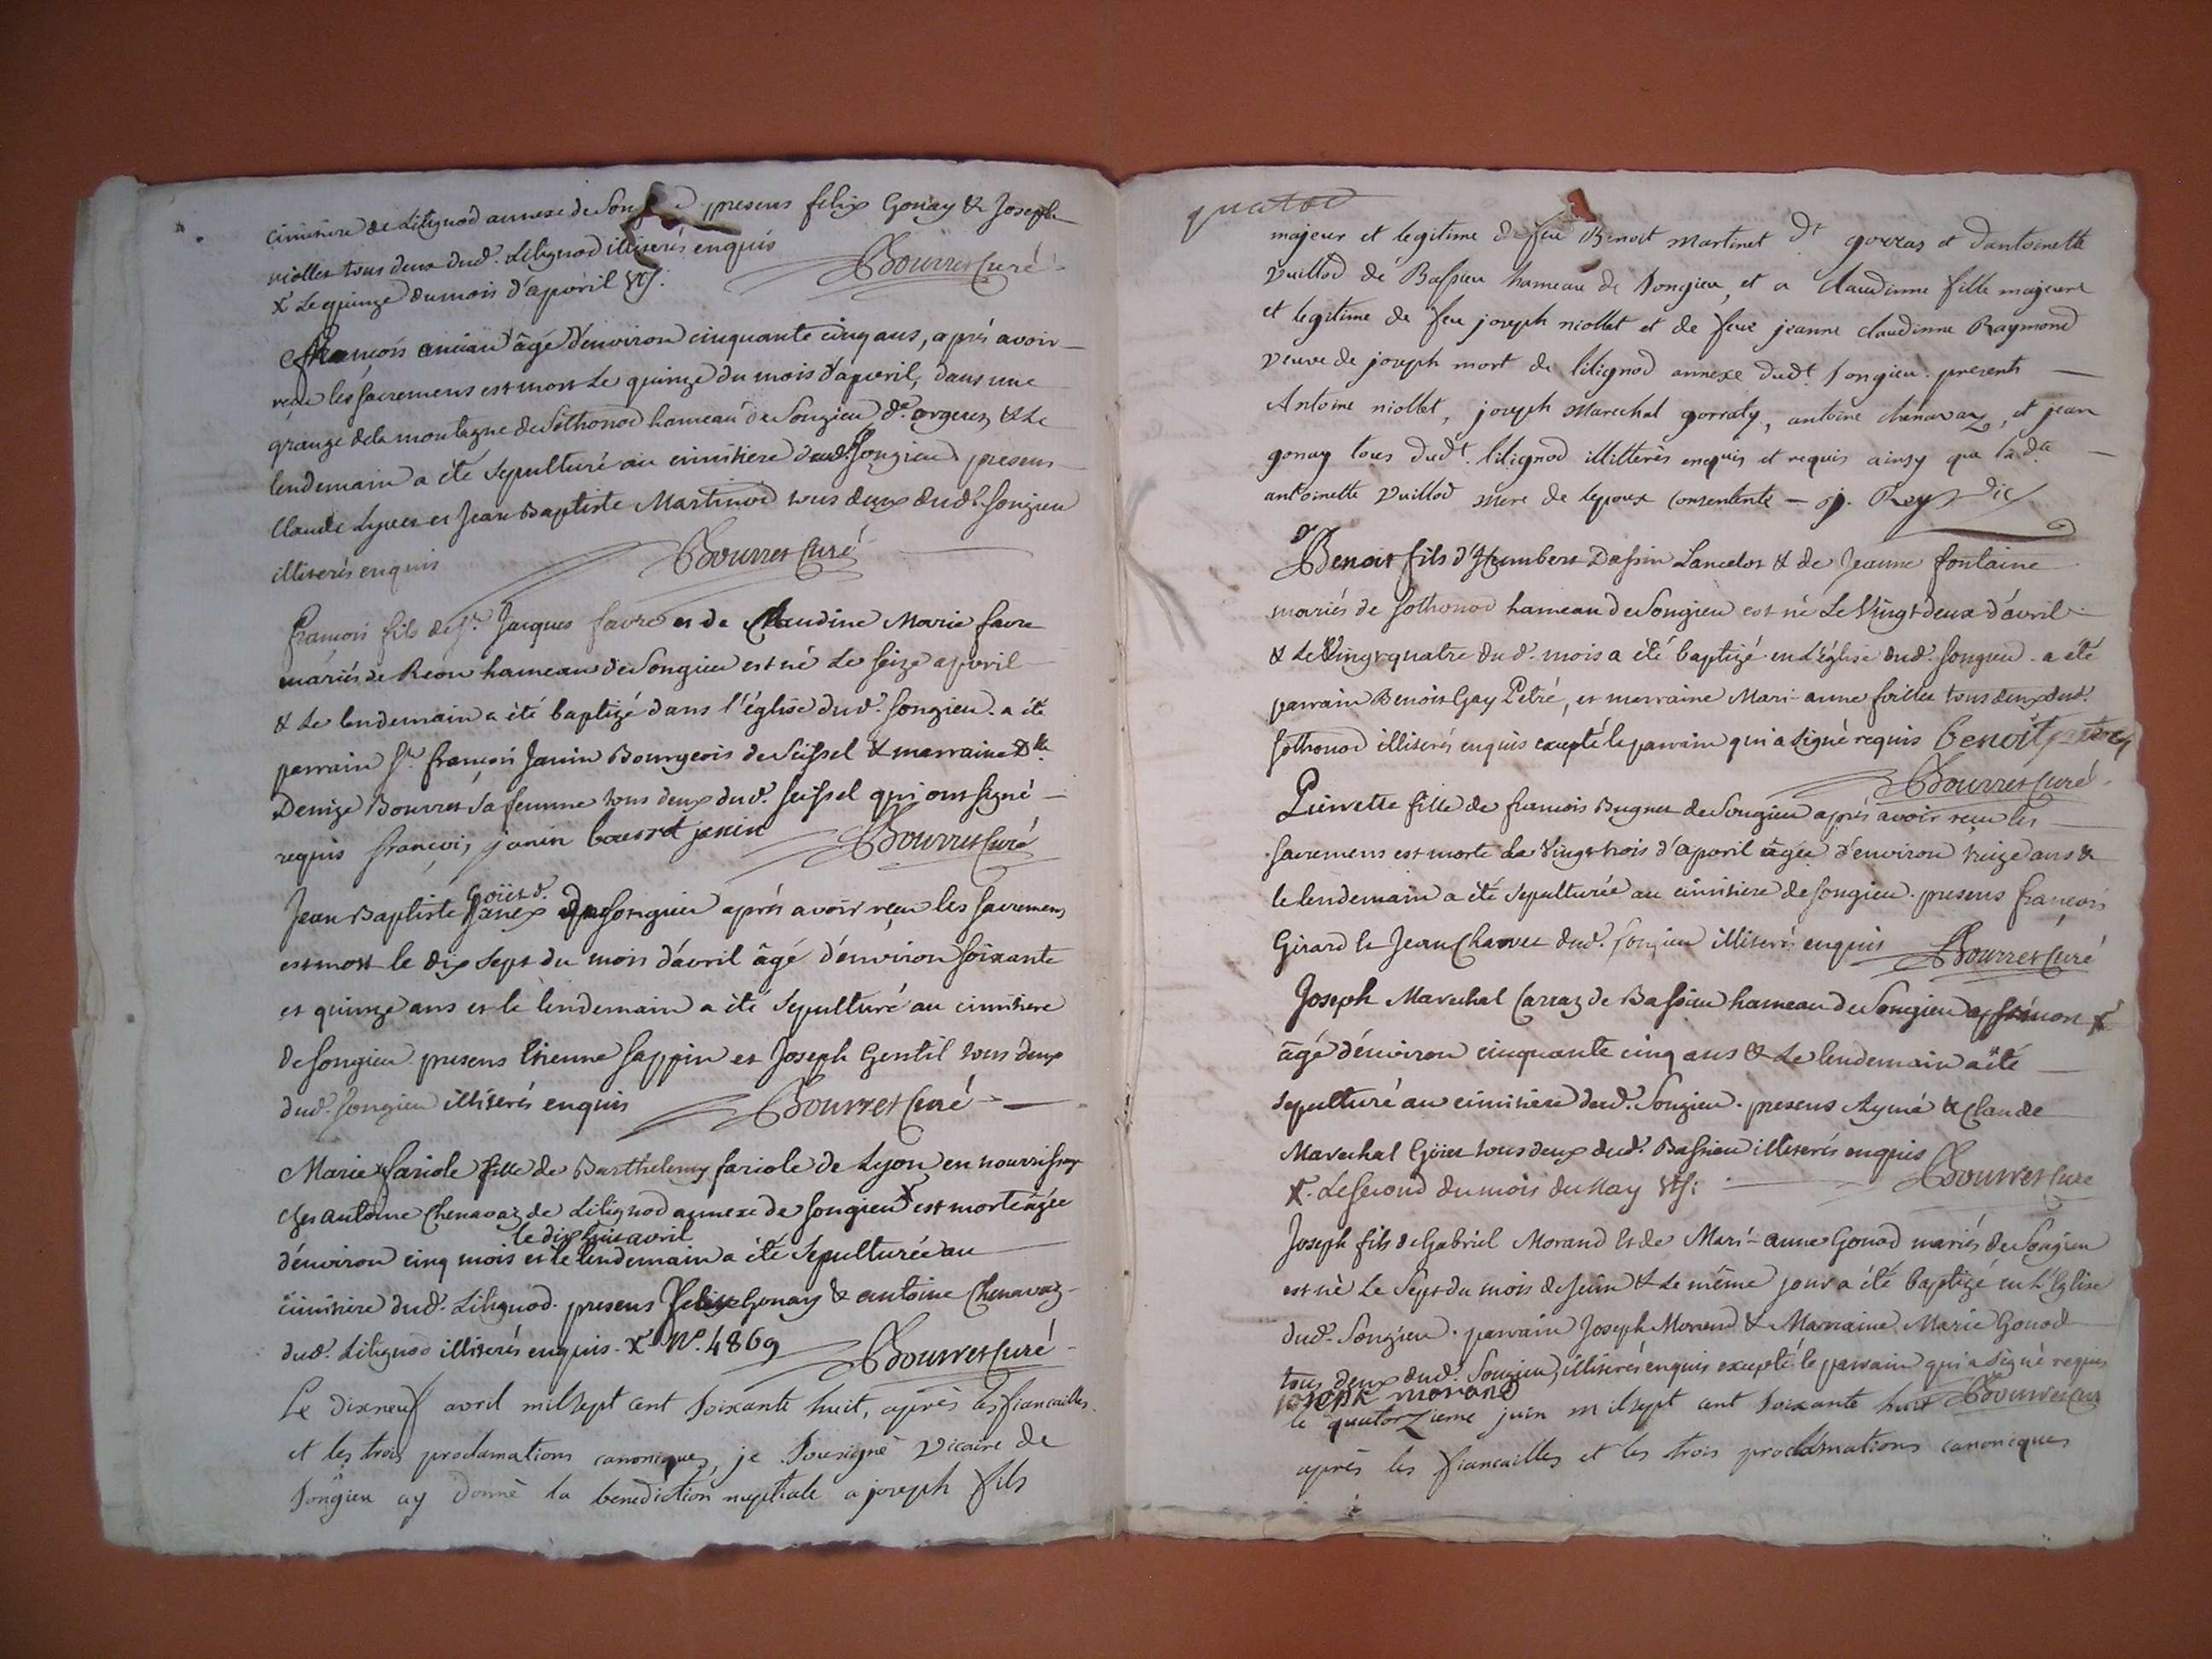 cimitiere de Lilignod annexe de Songieu presens felix Gonay & Joseph
niollet tous deux dud. Lilignod illiterés enquis
Bourret Curé
X Le quinze du mois d'apvril
François ancian âgé d'environ cinquante cinq ans, après avoir
reçu les sacremens est mort Le quinze du mois d'apvril, dans une
grange de la montagne de Sothonod hameau de Songieu & Le
lendemain a été sepulturé au cimitiere dud. Songieu presens
Claude Lyvet et Jean Baptiste Martinod tous deux dud. Songieu
illiterés enquis Bourret Curé
François fils de Sr. Jacques favre et de Claudine Marie favre
mariés de Reon hameau de Songieu est né Le seize apvril
& Le lendemain a été baptizé dans l'église dud. Songieu. a été
parrain Sr. françois Janin Bourgeois de Seissel & marraine Dlle
Denize Bourret sa femme tous deux dud. Seissel qui ont signé
requis françois janin bourret janin Bourret Curé
Goüet d.
Jean Baptiste Janex de Songieu après avoir reçu les sacremens
est mort le dix sept du mois d'avril âgé d'environ soixante
et quinze ans et le lendemain a été sepulturé au cimitiere
de Songieu presens Etienne Sappin et Joseph Gentil tous deux
dud. Songieu illiterés enquis Bourret Curé
Marie fariole fille de Barthelemy fariole de Lyon en nourrissage
chez antoine Chenavaz de Lilignod annexe de Songieu X est morte âgée
le dix huit avril
d'environ cinq mois et le lendemain a été sepulturée au
cimitiere dud. Lilignod. presens felix Gonay & antoine Chenavaz
dud. Lilignod illiterés enquis. X N°. 4869 Bourret Curé
Le dixneuf avril mil sept cent soixante huit, après les fiancailles
et les trois proclamations canoniques, je sousigné vicaire de
songieu ay donné la benediction nuptiale a joseph fils
majeur et legitime de feu Benoit Martinet dt gorraz et d'antoinette
Vuillod de Bassieu hameau de Songieu, et a claudinne fille majeure
et legitime de feu joseph niollet et de feue jeanne claudinne Raymond
veuve de joseph mort de lilignod annexe dudt. songieu. presents
Antoine niollet, joseph Marechal gorraty, antoine chenavaz, et jean
gonay tous dudt. lilignod illitterés enquis et requis ainsy que la dte
antoinette Vuillod mere de lepoux consentente — j. Rey vic
Benoit fils d'Humbert Dassin Lancelot & de Jeanne fontaine
mariés de Sothonod hameau de Songieu est né Le Vingt deux d'avril
& Le Vingt quatre dud. mois a été baptizé en L'église dud. Songieu. a été
parrain Benoit Gay Petré, et marraine Mari-anne tous deux dud.
Sothonod illiterés enquis excepté le parrain qui a signé requis Benoit
Bourret Curé
Pierrette fille de francois Bugnet de Songieu après avoir reçu les
sacremens est morte Le Vingt trois d'apvril âgée d'environ treize ans &
le lendemain a été sepulturée au cimitiere de Songieu. presens françois
Girard & Jean Charvet dud. Songieu illiterés enquis Bourret Curé
Joseph Marechal Carraz de Bassieu hameau de Songieu est mort X
âgé d'environ cinquante cinq ans & Le lendemain a été
sepulturé au cimitiere dud. Songieu. presens Aymé & Claude
Marechal Goiet tous deux dud. Bassieu illiterés enquis
X. Le second du mois du May Bourret Curé
Joseph fils de Gabriel Morand et de Mari-anne Gonod mariés de Songieu
est né Le sept du mois de Juin & Le même jour a été baptizé en L'Eglise
dud. Songieu. parrain Joseph Morand & Marraine Marie Gonod
tous deux dud. Songieu, illiterés enquis excepté le parrain qui a signé requis
joseph morand Bourret Curé
le quatorzieme juin mil sept cent soixante huit
après les fiancailles et les trois proclamations canoniques